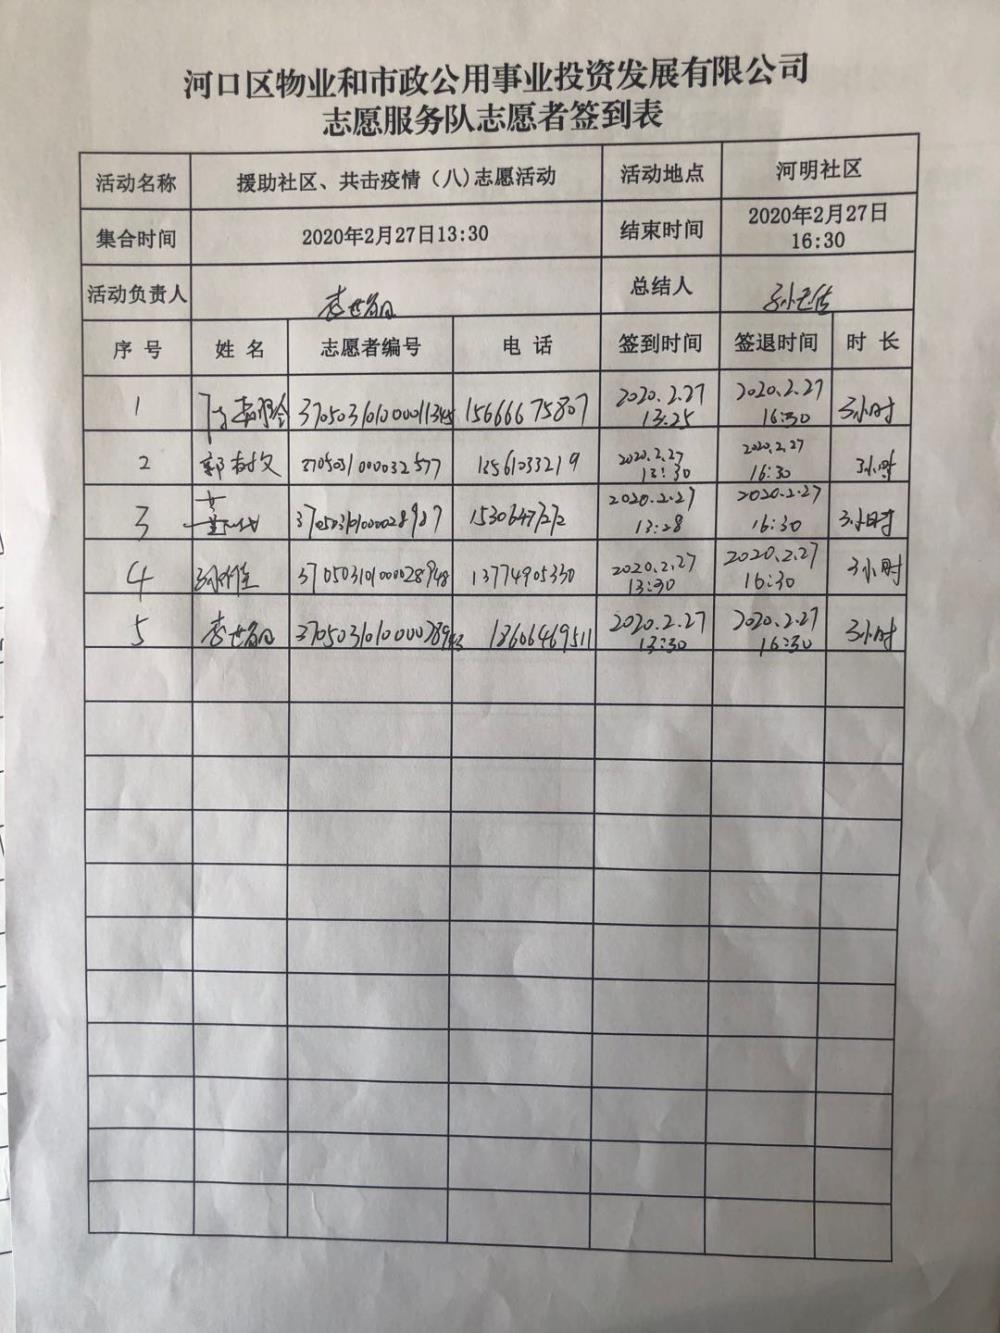 河口区物业和市政公用事业投资发展有限公司
志愿服务队志愿者签到表
活动名称 援助社区、共击疫情（八）志愿活动 活动地点 河明社区
集合时间 2020年2月27日13:30 结束时间 2020年2月27日
16:30
活动负责人 李世 总结人 孙
序 号 姓 名 志愿者编号 电 话 签到时间 签退时间 时 长
1 15666675807 2020.2.27 2020.2.27 3小时
13:25 16:30
2 郭 2020.2.27 2020.2.27 3小时
13:30 16:30
3 2020.2.27 2020.2.27 3小时
13:28 16:30
4 370503101000028948 13774905330 2020.2.27 2020.2.27 3小时
13:30 16:30
5 李世 370503101000028943 13606469511 2020.2.27 2020.2.27 3小时
13:30 16:30